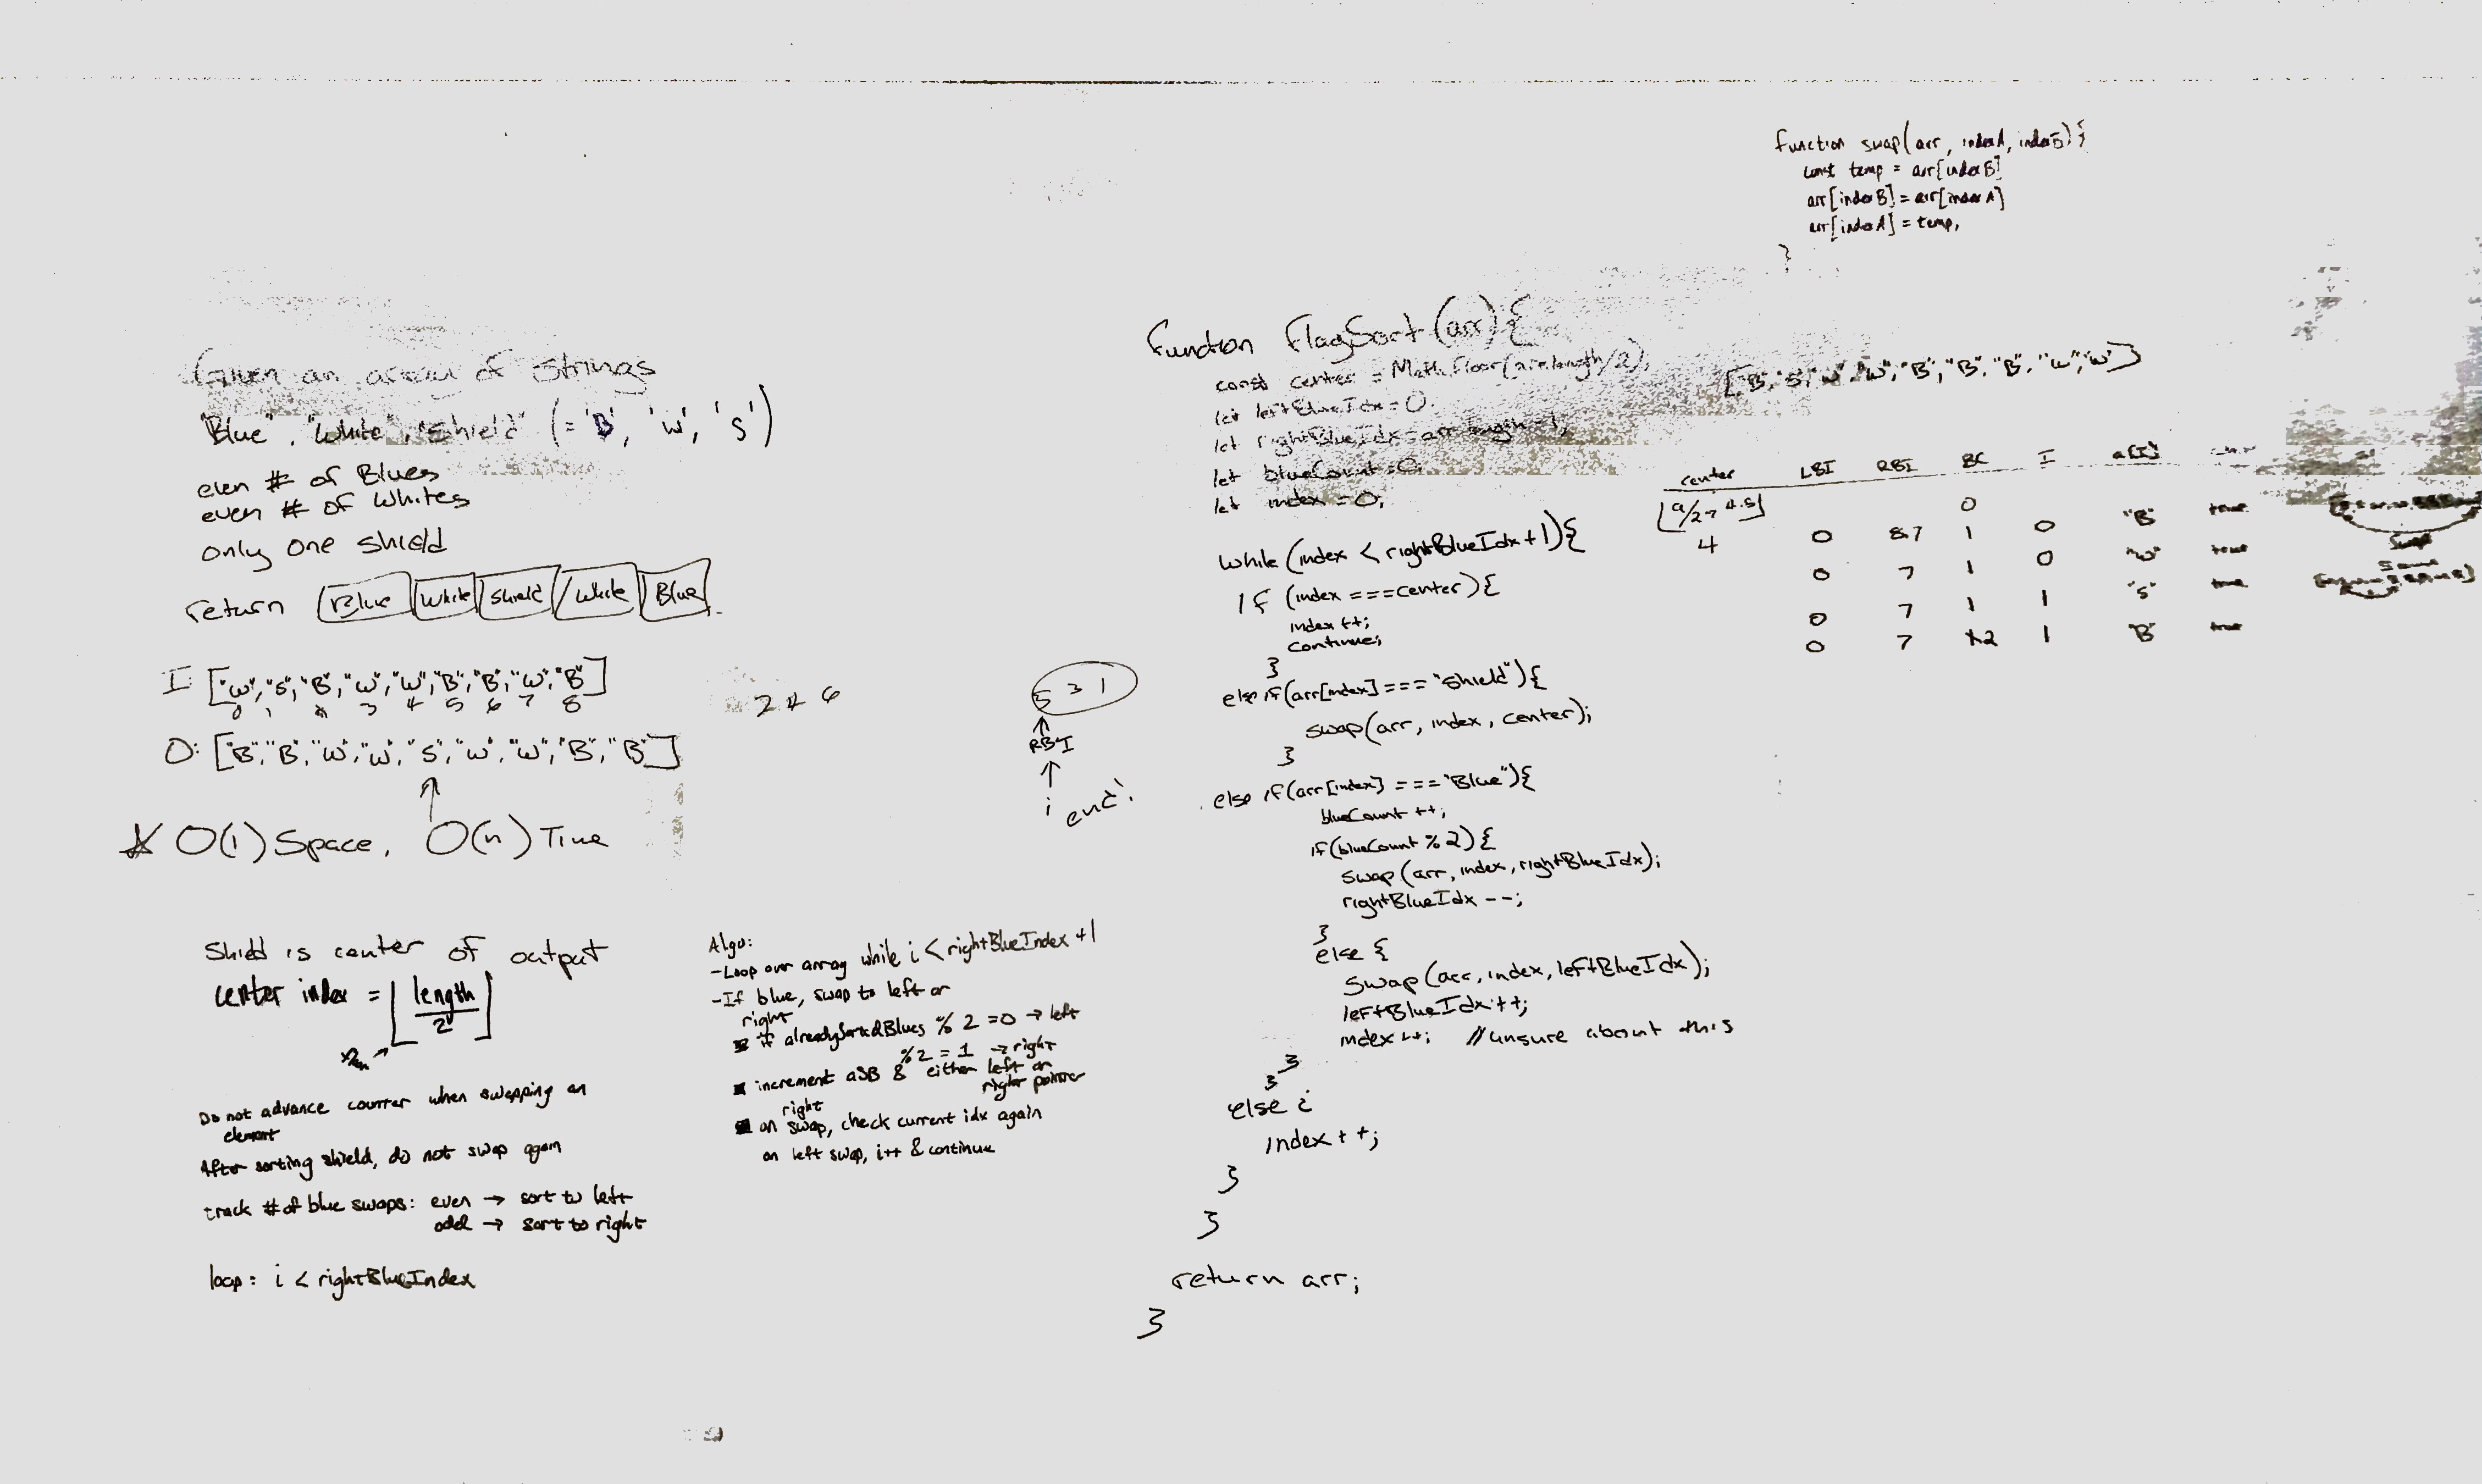 Given an array of strings
"Blue", "White", "Shield" (= 'B', 'W', 'S')
even # of Blues
even # of Whites
only one shield
return Blue White Shield White Blue
I: ["W", "S", "B", "W", "W", "B", "B", "W", "B"]
0 1 3 4 5 6 7 8
O: ["B", "B", "W", "W", "S", "W", "W", "B", "B"]
O(1) Space, O(n) Time
Shield is center of output
center index = ⌊length/2⌋
Do not advance counter when swapping an
element
After sorting shield, do not swap again
track # of blue swaps: even → sort to left
odd → sort to right
loop: i < rightBlueIndex
2 4 6
5 3 1
RBI
i end
Algo:
-Loop over array while i < rightBlueIndex +1
-If blue, swap to left or
right
if alreadySortedBlues % 2 = 0 → left
%2 = 1 → right
increment aSB & either left or
right pointer
right
on swap, check current idx again
on left swap, i++ & continue
function FlagSort(arr){
const center = Math.floor(arr.length/2);
let leftBlueIdx = 0;
let rightBlueIdx = arr.length-1;
let blueCount = 0;
let index = 0;
while (index < rightBlueIdx+1){
If (index === center){
index ++;
continue;
}
else if(arr[index] === "Shield"){
swap(arr, index, center);
}
else if(arr[index] === "Blue"){
blueCount ++;
if(blueCount % 2){
swap(arr, index, rightBlueIdx);
rightBlueIdx --;
}
else {
swap(arr, index, leftBlueIdx);
leftBlueIdx ++;
index ++; //unsure about this
}
}
else {
index ++;
}
}
return arr;
}
function swap(arr, indexA, indexB){
const temp = arr[indexB]
arr[indexB] = arr[indexA]
arr[indexA] = temp;
}
["B", "S", "W", "W", "B", "B", "B", "W", "W"]
center LBI RBI BC I a[I]
⌊9/2 → 4.5⌋ 0
4 0 8 7 1 0 "B" true
0 7 1 0 "W" true
0 7 1 1 "S" true
0 7 2 1 "B" true
swap